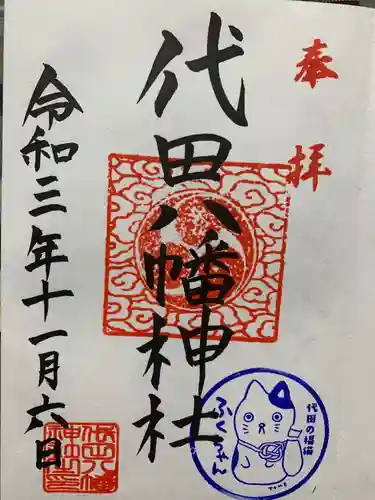 奉拝
代田八幡神社
令和三年十一月六日
代田の福猫
ふくにゃん